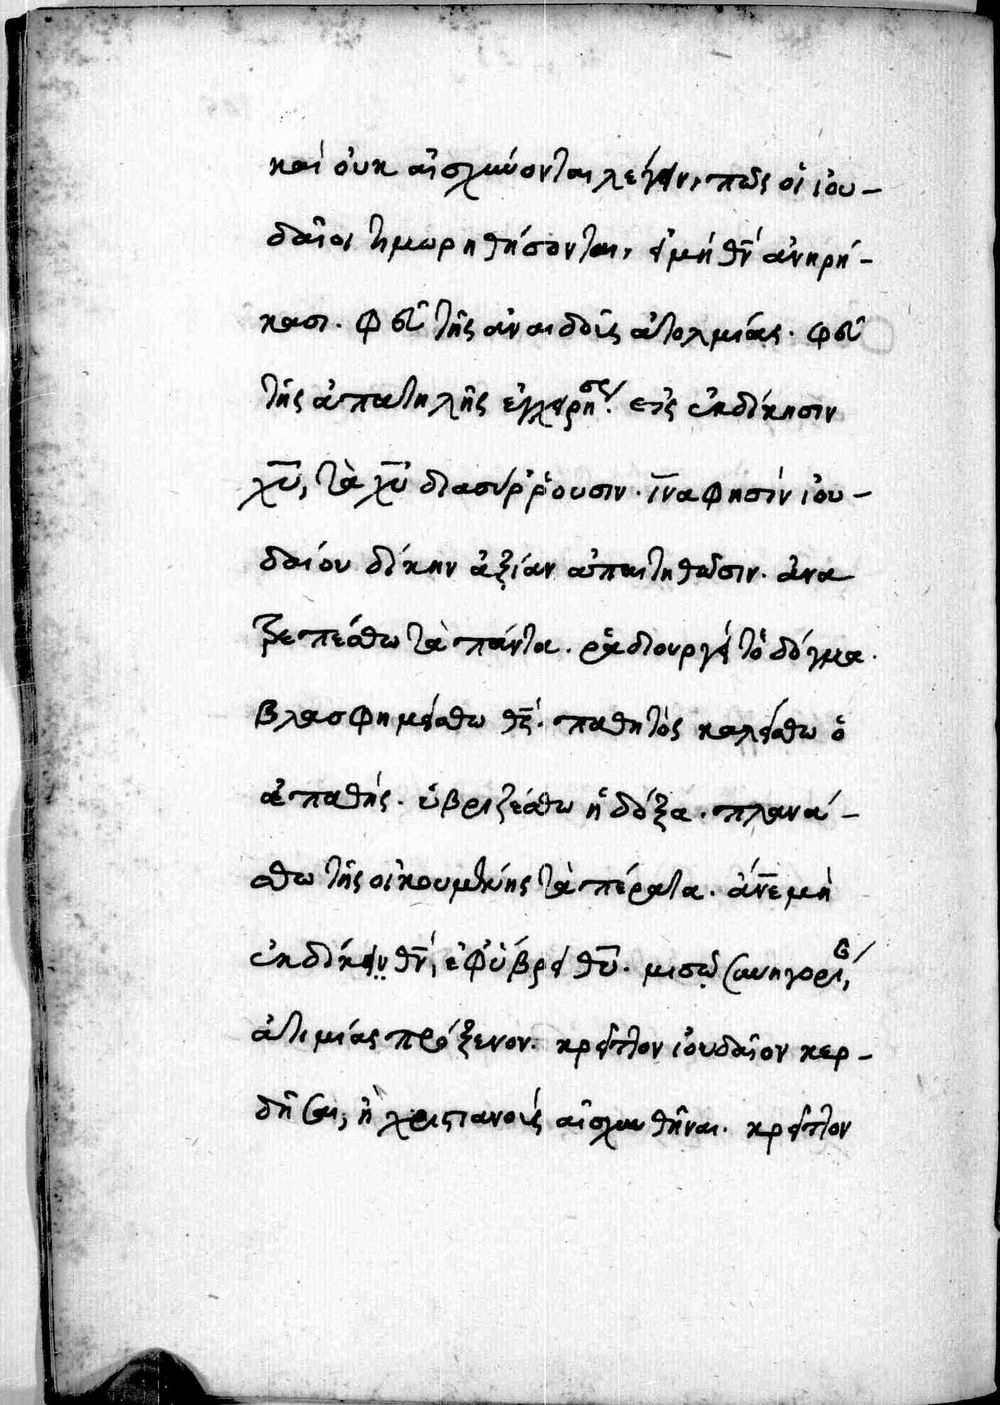 καὶ οὐκ αἰσχύνονται λέγειν, πῶς οἱ ἰου-
δαῖοι τιμωρηθήσονται, εἰ μὴ θν ἀνῃρή-
κασι. φεῦ τῆς ἀναιδοῦς ἀτολμίας. φεῦ
τῆς ἀπατηλῆς ἐγχειρήσεως. εἰς ἐκδίκησιν
χυ, τὰ χυ διασύρρουσιν. ἵνα φησὶν ἰου-
δαίου δίκην ἀξίαν ἀπαιτηθῶσιν. ἀνα
τρεπέσθω τὰ πάντα. ῥᾳδιουργεῖ τὸ δόγμα.
βλασφημείσθω θς. παθητὸς καλείσθω ὁ
ἀπαθής. ὑβριζέσθω ἡ δόξα. πλανά-
σθω τῆς οἰκουμένης τὰ πέρατα. ἄνε μὴ
ἐκδίκειν θν, ἐφ' ὕβρει θυ. μισῶ συνηγορίαν,
ἀτιμίας πρόξενον. κρεῖττον ἰουδαῖον κερ-
δῆσαι, ἢ χριστιανοὺς αἰσχυνθῆναι. κρεῖττον